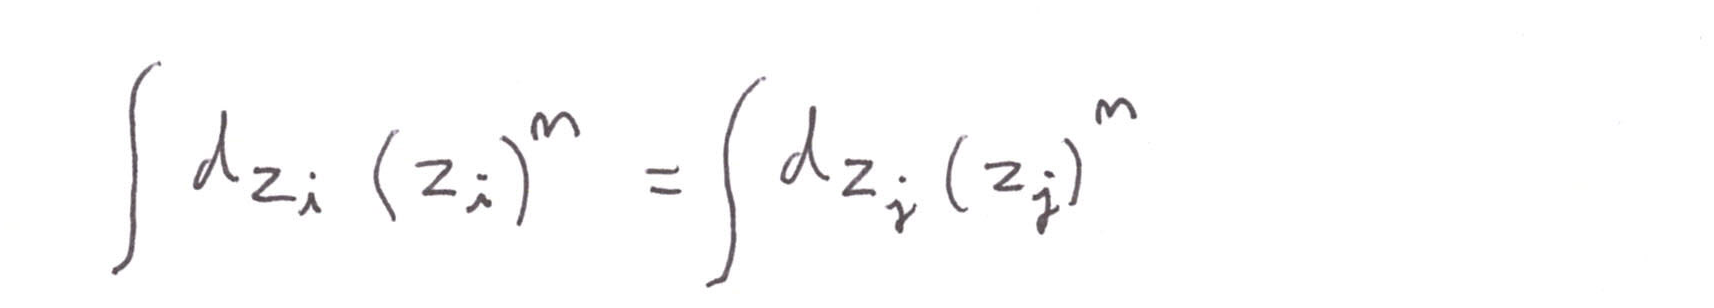 ∫ dz_i (z_i)^m = ∫ dz_j (z_j)^m